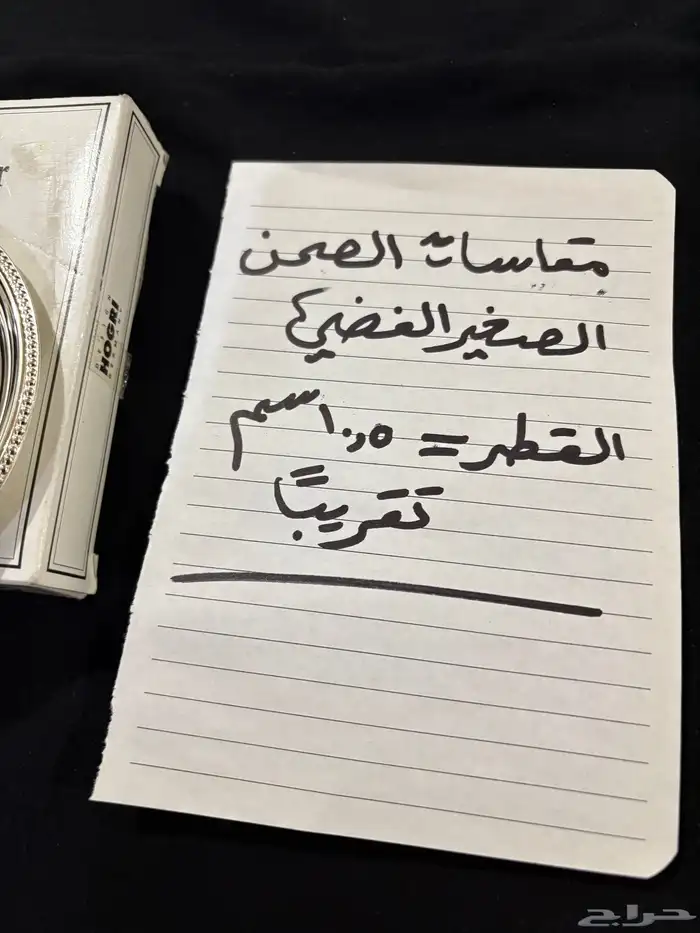 مقاسات الصحن
الصغير الفضي
القطر = ١٠,٥ سم
تقريبًا
HOGRI
حراج